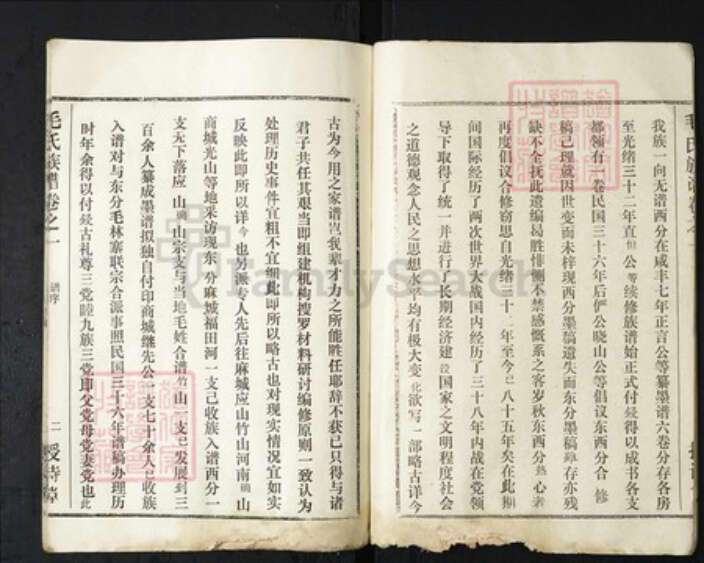 我族一向无谱西分在咸丰七年正言公等纂墨谱六卷分存各房
至光绪三十二年直恒公等续修族谱始正式付梓得以成书各支
都领有一卷民国三十六年后俨公晓山公等倡议东西分合修
稿已理就因世变而未梓现西分墨稿遗失而东分墨稿虽存亦残
缺不全抚此遗编曷胜悱恻不禁感慨系之客岁秋东西分热心者
再度倡议合修窃思自光绪三十二年至今已八十五年矣在此期
间国际经历了两次世界大战国内经历了三十八年内战在党领
导下取得了统一并进行了长期经济建设国家之文明程度社会
之道德观念人民之思想水平均有极大变化欲写一部略古详今
古为今用之家谱岂我辈才力之所能胜任耶辞不获已只得与诸
君子共任其艰当即组建机构搜罗材料研讨编修原则一致认为
处理历史事件宜粗不宜细此即所以略古也对现实情况宜如实
反映此即所以详今也另派专人先后往麻城应山竹山河南确山
商城光山等地采访现东分麻城福田河一支己收族入谱西分一
支无下落应山确山宗支与当地毛姓合谱竹山一支已发展到三
百余人纂成墨谱拟独自付印商城继先公一支七十余人已收族
入谱对与东分毛林寨联宗合派事照民国三十六年谱稿办理历
时年余得以付梓古礼尊三党睦九族三党即父党母党妻党也此
毛氏族谱卷之一
谱序
二
授诗堂
FamilySearch